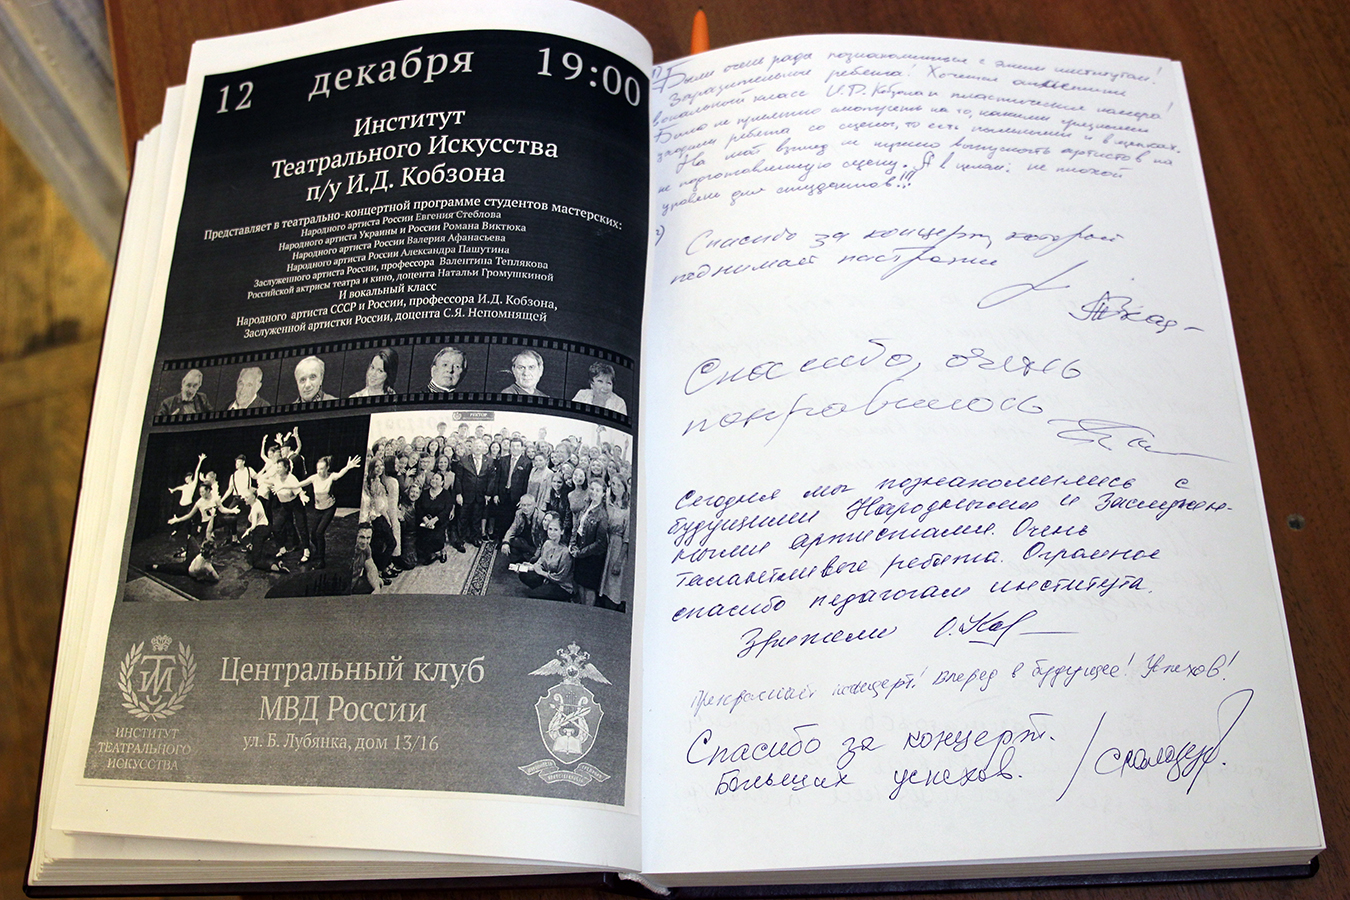 12 декабря 19:00
Институт
Театрального Искусства
п/у И.Д. Кобзона
Представляет в театрально-концертной программе студентов мастерских:
Народного артиста России Евгения Стеблова
Народного артиста Украины и России Романа Виктюка
Народного артиста России Валерия Афанасьева
Народного артиста России Александра Пашутина
Заслуженного артиста России, профессора Валентина Теплякова
Российской актрисы театра и кино, доцента Натальи Громушкиной
И вокальный класс
Народного артиста СССР и России, профессора И.Д. Кобзона,
Заслуженной артистки России, доцента С.Я. Непомнящей
Центральный клуб
МВД России
ул. Б. Лубянка, дом 13/16
ИНСТИТУТ
ТЕАТРАЛЬНОГО
ИСКУССТВА
1) Были очень рады познакомиться с этим институтом!
Заразительные ребята! Хочется отметить
вокальный класс И.Д. Кобзона и пластические номера!
Было не приятно смотреть на то, какими грязными
уходили ребята со сцены, то есть пыльными и в
На мой взгляд не нужно выпускать артистов на
не подготовленную сцену. А в целом: не плохой
уровень для студентов!!!
2) Спасибо за концерт, который
поднимает настроение
Спасибо, очень
понравилось
Сегодня мы познакомились с
будущими Народными и Заслужен-
ными артистами. Очень
талантливые ребята. Огромное
спасибо педагогам института.
Зрители
Прекрасный концерт! Вперед в будущее! Успехов!
Спасибо за концерт.
Больших успехов.